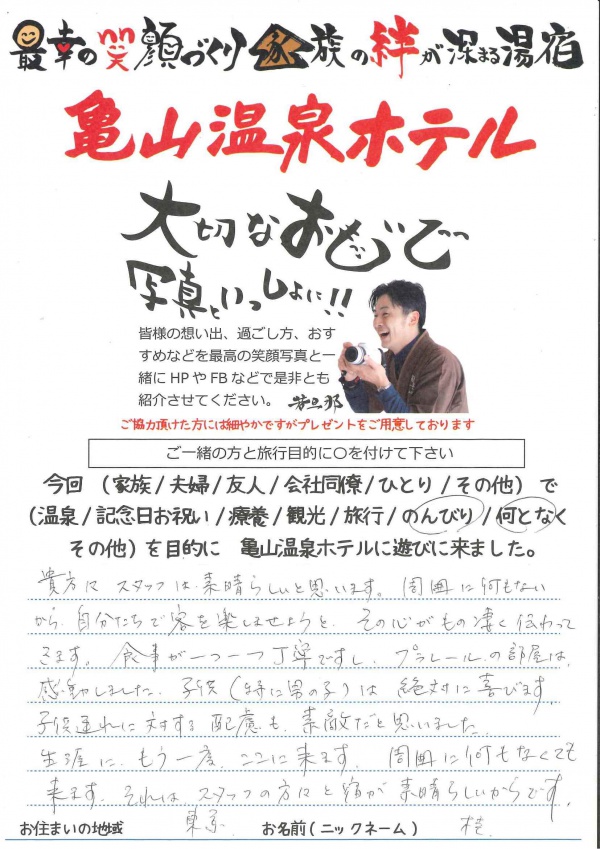 最幸の笑顔づくり家族の絆が深まる湯宿
亀山温泉ホテル
大切なおもいで
写真といっしょに!!
皆様の想い出、過ごし方、おす
すめなどを最高の笑顔写真と一
緒にHPやFBなどで是非とも
紹介させてください。 若旦那
ご協力頂けた方には細やかですがプレゼントをご用意しております
ご一緒の方と旅行目的に〇を付けて下さい
今回 (家族/夫婦/友人/会社同僚/ひとり/その他) で
(温泉/記念日お祝い/療養/観光/旅行/のんびり/何となく
その他) を目的に 亀山温泉ホテルに遊びに来ました。
貴方に スタッフは素晴らしいと思います。 周囲に何もない
から、自分たちで客を楽しませようと、その心がもの凄く伝わって
きます。 食事が一つ一つ丁寧ですし、プラレールの部屋は、
感動しました。子供(特に男の子)は 絶対に喜びます。
子供連れに対する配慮も、素敵だと思いました。
生涯に、もう一度、ここに来ます。 周囲に何もなくても
来ます。それは スタッフの方々と宿が 素晴らしいからです。
お住まいの地域 東京 お名前(ニックネーム) 桂